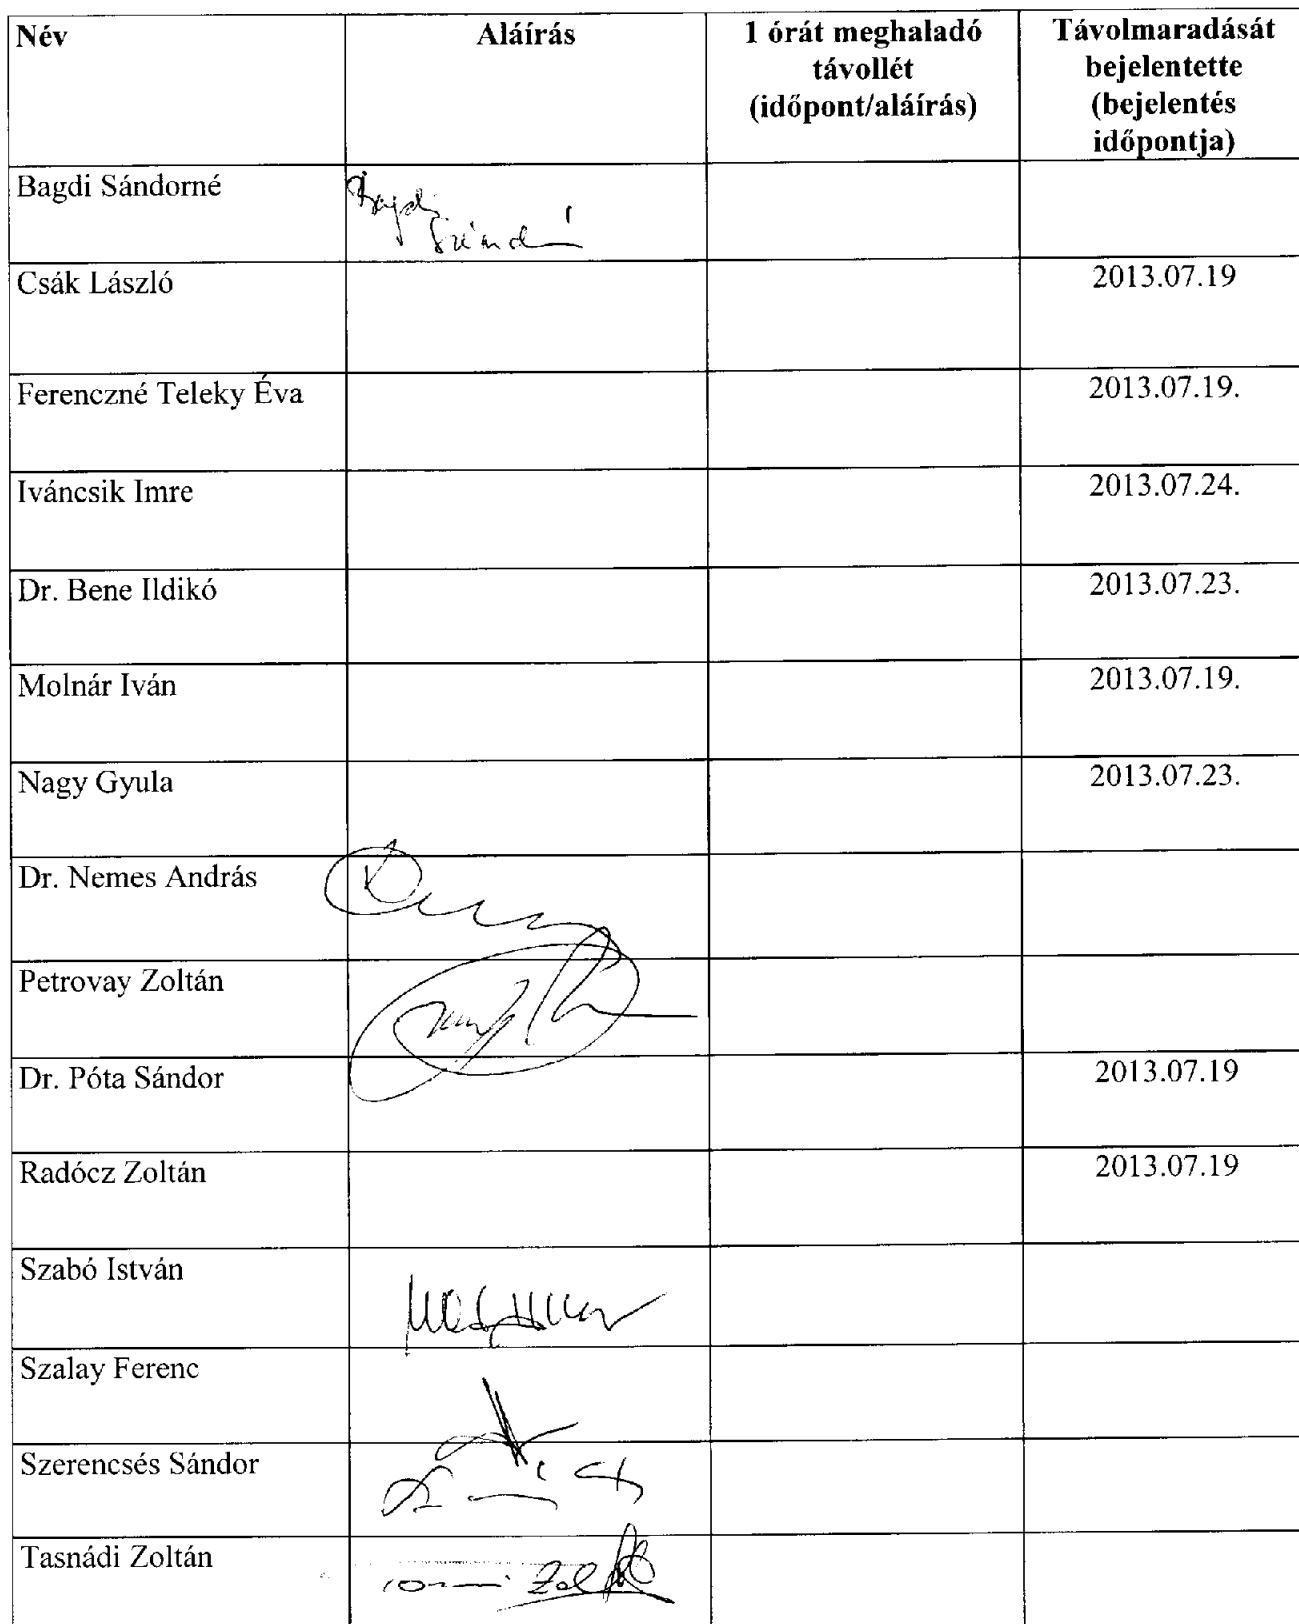 Név Aláírás 1 órát meghaladó távollét (időpont/aláírás) Távolmaradását bejelentette (bejelentés időpontja)
Bagdi Sándorné Bagdi
Csák László 2013.07.19
Ferenczné Teleky Éva 2013.07.19.
Iváncsik Imre 2013.07.24.
Dr. Bene Ildikó 2013.07.23.
Molnár Iván 2013.07.19.
Nagy Gyula 2013.07.23.
Dr. Nemes András
Petrovay Zoltán
Dr. Póta Sándor 2013.07.19
Radócz Zoltán 2013.07.19
Szabó István
Szalay Ferenc
Szerencsés Sándor
Tasnádi Zoltán